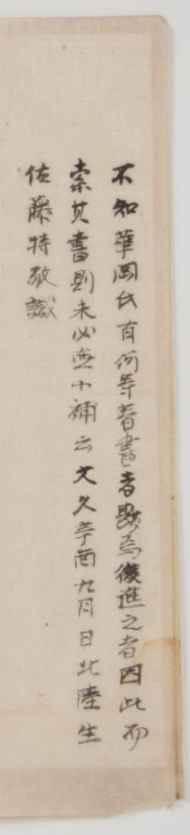 不知華岡氏有何等著書者照焉後進之者因此而
索其書則未必無小補云文久辛酉九月日北陸生
佐藤持敬識